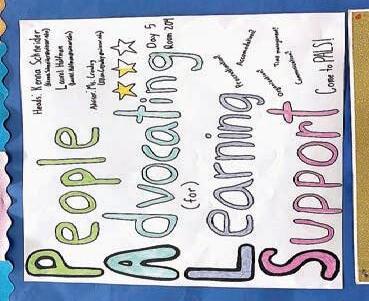 People
Advocating
(for)
Learning
Support
Heads: Kenna Schneider
Laurel Hoffman
Advisor: Ms. Crowley
Day 5
Room 204
Accommodations?
Time management?
Communication?
Come to PALS!